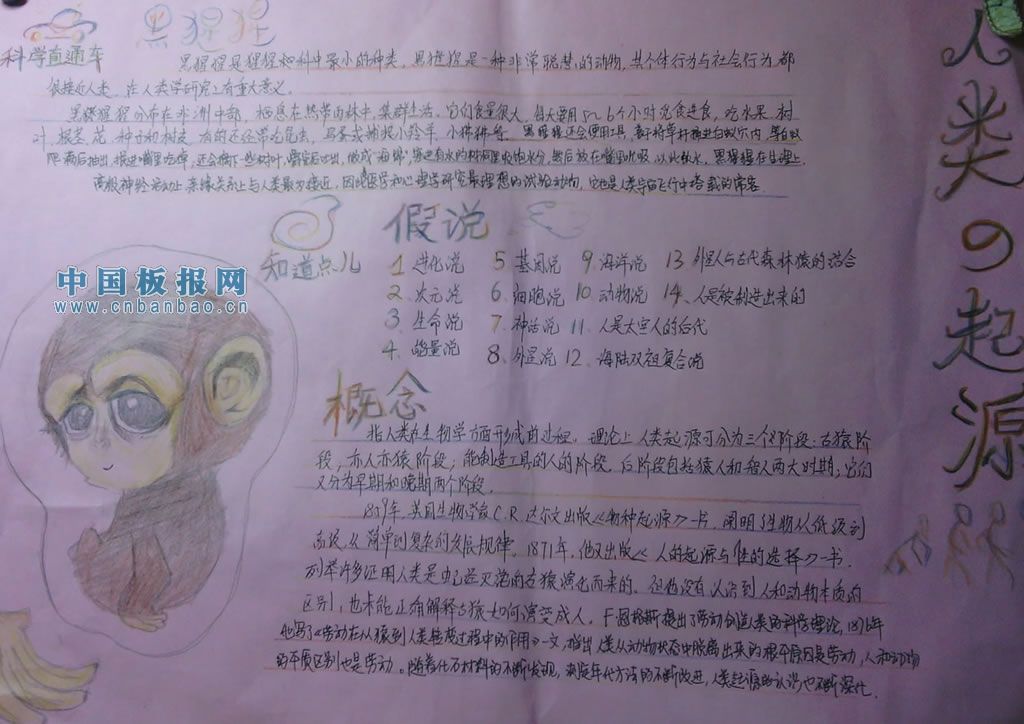 科学直通车
黑猩猩
黑猩猩是猩猩科中最小的种类，黑猩猩是一种非常聪慧的动物，其个体行为与社会行为都
很接近人类，在人类学研究上有重大意义。
黑猩猩分布在非洲中部，栖息在热带雨林中，集群生活。它们食量很大，每天要用5～6个小时觅食进食，吃水果、树
叶、根茎、花、种子和树皮，有的还经常吃昆虫、鸟蛋或捕捉小羚羊、小狒狒等。黑猩猩还会使用工具，
高级神经活动上、亲缘关系上与人类最为接近，因此医学和心理学研究最理想的试验动物，它也是人类宇宙飞行中搭载的常客。
假说
知道点儿
1、进化说 5、基因说 9、海洋说 13、外星人与古代森林猿的结合
2、次元说 6、细胞说 10、动物说 14、人是被制造出来的
3、生命说 7、神话说 11、人是太空人的后代
4、能量说 8、外星说 12、海陆双祖复合说
中国板报网
www.cnbanbao.cn
概念
指人类在生物学方面形成的过程。理论上人类起源可分为三个阶段：古猿阶
段；亦人亦猿阶段；能制造工具的人的阶段。后阶段包括猿人和智人两大时期；它们
又分为早期和晚期两个阶段。
1859年，英国生物学家C.R.达尔文出版《物种起源》一书，阐明了生物从低级到
高级、从简单到复杂的发展规律。1871年，他又出版《人的起源与性的选择》一书，
列举许多证明人类是由已经灭绝的古猿演化而来的。但他没有认识到人和动物本质的
区别，也未能正确解释古猿如何演变成人。F.恩格斯提出了劳动创造人类的科学理论，1876年
他写了《劳动在从猿到人类转变过程中的作用》一文，指出人类从动物状态中脱离出来的根本原因是劳动，人和动物
的本质区别也是劳动。随着化石材料的不断发现，测定年代方法的不断改进，人类起源的认识也不断深化。
人类の起源